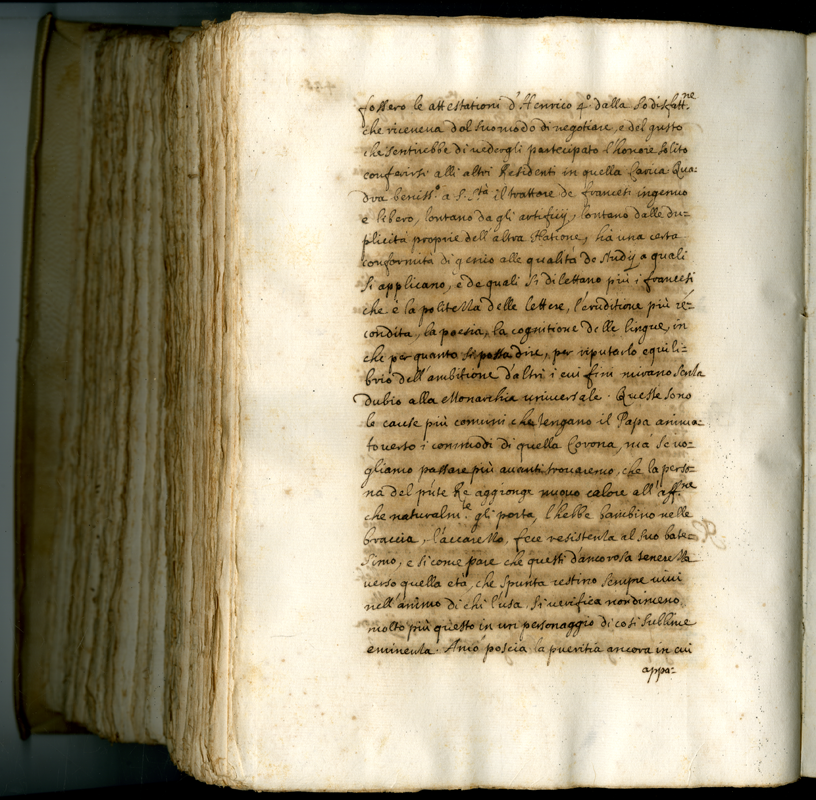 fossero le attestationi d'Henrico 4.º dalla sodisfatt.ne
che riceveva dal suo modo di negotiare, e del gusto
che sentirebbe di vedergli partecipato l'honore solito
conferirsi alli altri Residenti in quella Carica. Qua:
dra beniss.º a S. S.tà il trattare de francesi ingenuo
e libero, lontano da gli artifitij, lontano dalle du=
plicità proprie dell'altra Natione, hà una certa
conformità di genio alle qualità de studij a quali
si applicano, e de quali si dilettano più i francesi
che è la politezza delle lettere, l'eruditione più re=
condita, la poesia, la cognitione delle lingue, in
che per quanto si possa dire, per riputarlo equili=
brio dell'ambitione d'altri i cui fini mirano senza
dubio alla Monarchia universale. Queste sono
le cause più comuni che tengano il Papa anima=
to verso i commodi di quella Corona, ma se vo=
gliamo passare più avanti trovaremo, che la perso=
na del p'nte Re aggionge nuovo calore all'aff.ne
che naturalm.te gli porta, l'hebbe bambino nelle
braccia, l'accarezzò, fece resistenza al suo bate=
simo, e sicome pare che questi d'ancorosa tenerezza
verso quella età, che spunta restino sempre vivi
nell'animo di chi l'usa. Si verifica nondimeno
molto più questo in un personaggio di così sublime
eminenza. Amò poscia la pueritia ancora in cui
appa=